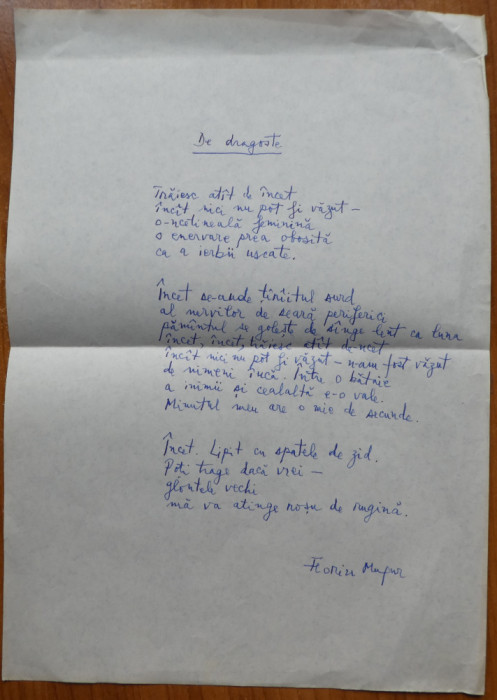 De dragoste
Trăiesc atît de încet
încît nici nu pot fi văzut –
o-ncetineală feminină
o enervare prea obosită
ca a ierbii uscate.
Încet se-aude țîrîitul surd
al nervilor de seară periferici
pămîntul se golește de sînge lent ca luna
încet, încet, trăiesc atît de-ncet
încît nici nu pot fi văzut – n-am fost văzut
de nimeni încă. Între o bătaie
a inimii și cealaltă e-o vale.
Minutul meu are o mie de secunde.
Încet. Lipit cu spatele de zid.
Poți trage dacă vrei –
glontele vechi
mă va atinge roșu de rugină.
Florin Mugur